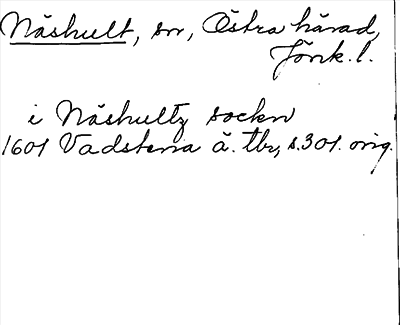 Näshult, sn, Östra härad,
Jönk. l.
i Näshultz sockn
1601 Vadstena ä. tbr, s. 301. orig.